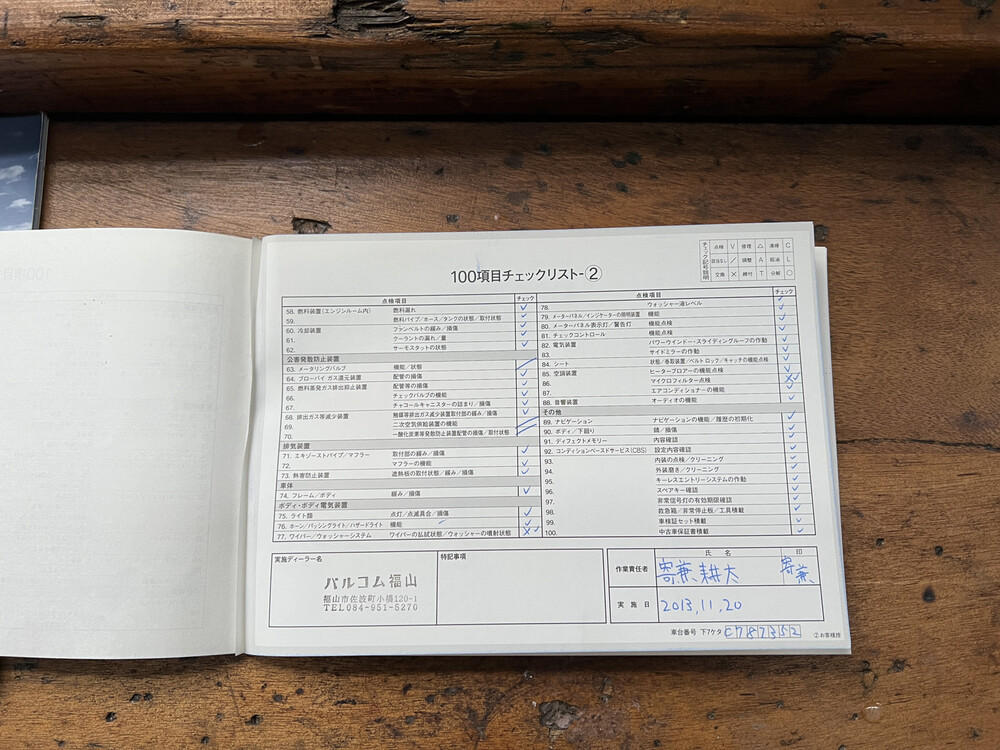 100項目チェックリスト-②
チェック記号説明
点検 V 修理 △ 清掃 C
該当なし / 調整 A 給油 L
交換 × 締付 T 分解 ○
点検項目 チェック
58. 燃料装置(エンジンルーム内) 燃料漏れ ✓
59. 燃料パイプ/ホース/タンクの状態/取付状態 ✓
60. 冷却装置 ファンベルトの緩み/損傷 ✓
61. クーラントの漏れ/量 ✓
62. サーモスタットの状態 ✓
公害発散防止装置
63. メータリングバルブ 機能/状態 /
64. ブローバイ ガス還元装置 配管の損傷 ✓
65. 燃料蒸発ガス排出抑止装置 配管等の損傷 ✓
66. チェックバルブの機能 ✓
67. チャコールキャニスターの詰まり/損傷 ✓
68. 排出ガス等減少装置 触媒等排出ガス減少装置取付部の緩み/損傷 ✓
69. 二次空気供給装置の機能 /
70. 一酸化炭素等発散防止装置配管の損傷/取付状態 /
排気装置
71. エキゾーストパイプ/マフラー 取付部の緩み/損傷 ✓
72. マフラーの機能 ✓
73. 熱害防止装置 遮熱板の取付状態/緩み/損傷 ✓
車体
74. フレーム/ボディ 緩み/損傷 ✓
ボディ・ボディ電気装置
75. ライト類 点灯/点滅具合/損傷 ✓
76. ホーン/パッシングライト/ハザードライト 機能 ✓
77. ワイパー/ウォッシャーシステム ワイパーの払拭状態/ウォッシャーの噴射状態 × ✓
点検項目 チェック
78. ウォッシャー液レベル ✓
79. メーターパネル/インジケーターの照明装置 機能 ✓
80. メーターパネル表示灯/警告灯 機能点検 ✓
81. チェックコントロール 機能点検 ✓
82. 電気装置 パワーウインドー・スライディングルーフの作動 ✓
83. サイドミラーの作動 ✓
84. シート 状態/巻取装置/ベルト ロック/キャッチの機能点検 ✓
85. 空調装置 ヒーターブロアーの機能点検 ✓
86. マイクロフィルター点検 × ✓
87. エアコンディショナーの機能 ✓
88. 音響装置 オーディオの機能 ✓
その他
89. ナビゲーション ナビゲーションの機能/履歴の初期化 ✓
90. ボディ/下廻り 錆/損傷 ✓
91. ディフェクトメモリー 内容確認 ✓
92. コンディションベースドサービス(CBS) 設定内容確認 ✓
93. 内装の点検/クリーニング ✓
94. 外装磨き/クリーニング ✓
95. キーレスエントリーシステムの作動 ✓
96. スペアキー確認 ✓
97. 非常信号灯の有効期限確認 ✓
98. 救急箱/非常停止板/工具積載 ✓
99. 車検証セット積載 ✓
100. 中古車保証書積載 ✓
実施ディーラー名
バルコム福山
福山市佐波町小橋120-1
TEL084-951-5270
特記事項
氏 名 印
作業責任者 寄兼 耕太 寄兼
実 施 日 2013,11,20
車台番号 下7ケタ C787352
②お客様控